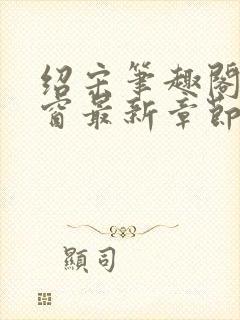 绍宋笔趣阁
窗最新章节
顯司